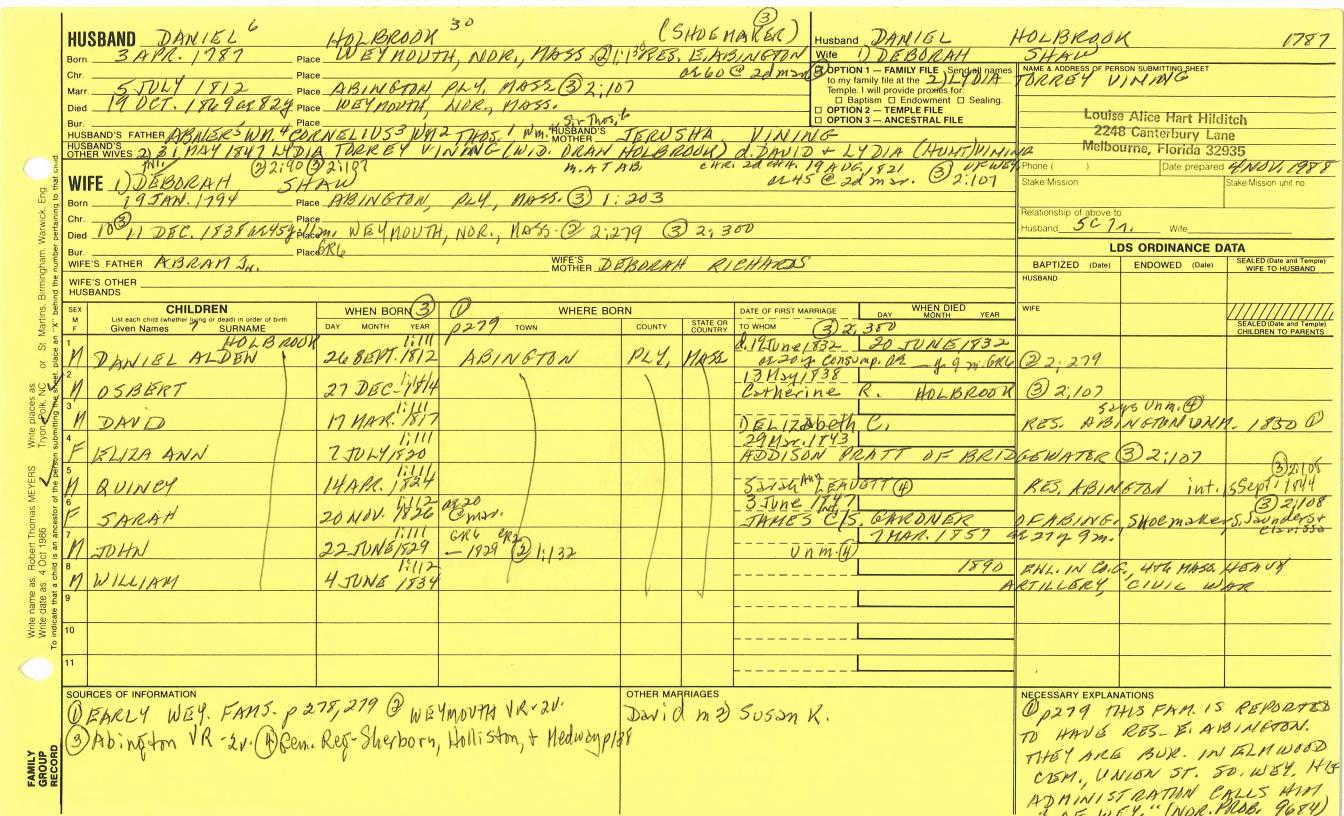 HUSBAND DANIEL 6 HOLBROOK 30 (SHOEMAKER) ③
Born 3 APR. 1787 Place WEYMOUTH, NOR., MASS. ② RES. E. ABINGTON
Chr. Place or 60 @ 2d mar ③
Marr. 5 JULY 1812 Place ABINGTON PLY. MASS ③ 2:107
Died 19 OCT. 1869 ae 82y Place WEYMOUTH, NOR., MASS.
Bur. Place Sir Thos. 6
HUSBAND'S FATHER ABNER5 WM.4 CORNELIUS3 WM2 THOS.1 Wm. HUSBAND'S MOTHER JERUSHA VINING
HUSBAND'S OTHER WIVES 2) 31 MAY 1847 LYDIA TORREY VINING (WID. ORAN HOLBROOK) d. DAVID + LYDIA (HUNT) VINING
② 2:90 ③ 2:107 M. AT AB. CHR. 2d CH. 19 AUG. 1821 OF WEY.
or 45 @ 2d mar. ③ 2:107
WIFE 1) DEBORAH SHAW
Born 19 JAN. 1794 Place ABINGTON, PLY, MASS. ③ 1:203
Chr. Place
Died 10 ③ 11 DEC. 1838 ae 45y Place WEYMOUTH, NOR., MASS. ② 2:279 ③ 2:300
Bur. Place GR6
WIFE'S FATHER ABRAM Jr. WIFE'S MOTHER DEBORAH RICHARDS
WIFE'S OTHER HUSBANDS
Husband DANIEL HOLBROOK 1787
Wife 1) DEBORAH SHAW
2) LYDIA TORREY VINING
OPTION 1 — FAMILY FILE Send all names
to my family file at the
Temple. I will provide proxies for:
☐ Baptism ☐ Endowment ☐ Sealing.
☐ OPTION 2 — TEMPLE FILE
☐ OPTION 3 — ANCESTRAL FILE
NAME & ADDRESS OF PERSON SUBMITTING SHEET
Louise Alice Hart Hilditch
2248 Canterbury Lane
Melbourne, Florida 32935
Phone ( ) Date prepared 4 NOV. 1988
Stake/Mission Stake/Mission unit no.
Relationship of above to
Husband 5C7r. Wife
LDS ORDINANCE DATA
BAPTIZED (Date) ENDOWED (Date) SEALED (Date and Temple) WIFE TO HUSBAND
HUSBAND
WIFE
SEALED (Date and Temple) CHILDREN TO PARENTS
SEX M F
CHILDREN
List each child (whether living or dead) in order of birth
Given Names 7 SURNAME
WHEN BORN ③ ①
DAY MONTH YEAR p279
WHERE BORN
TOWN COUNTY STATE OR COUNTRY
DATE OF FIRST MARRIAGE
TO WHOM
WHEN DIED
DAY MONTH YEAR
③ 2,300
HOLBROOK 1:111 d. 19 June 1832 20 JUNE 1832
1 M DANIEL ALDEN 26 SEPT. 1812 ABINGTON PLY, MASS ae 20y Consump. GR6 ② 2:279
1:111 13 May 1838
2 M OSBERT 27 DEC. 1814 Catherine R. HOLBROOK ③ 2:107
1:111 says Unm. ④
3 M DAVID 17 MAR. 1817 1) ELIZAbeth C. RES. ABINGTON UNM. 1850 ①
1:111 29 Mar. 1843
4 F ELIZA ANN 7 JULY 1820 ADDISON PRATT OF BRIDGEWATER ③ 2:107
1:111 ③ 2:108
5 M QUINCY 14 APR. 1824 Sarah Ann LEAVOTT ④ RES. ABINGTON int. 15 Sept. 1844
1:112 ae 20 @ mar. 3 June 1847 ③ 2:108
6 F SARAH 20 NOV. 1826 JAMES C/S. GARDNER OF ABING. Shoemaker S. Saunders + Clarissa
1:111 GR6 GR2 7 MAR. 1857 ae 27y 9m.
7 M JOHN 22 JUNE 1829 — 1829 ② 1:132 Unm. ④
1:112 1890 ENL. IN CO. G., 4TH MASS. HEAVY
8 M WILLIAM 4 JUNE 1834 ARTILLERY, CIVIL WAR
9
10
11
SOURCES OF INFORMATION
① EARLY WEY. FAMS. p 278, 279 ② WEYMOUTH VR-2v.
③ Abington VR-2v. ④ Gen. Reg-Sherborn, Holliston, + Medway p138
OTHER MARRIAGES
David m 2) Susan K.
NECESSARY EXPLANATIONS
① p279 THIS FAM. IS REPORTED
TO HAVE RES- E. ABINGTON.
THEY ARE BUR. IN ELMWOOD
CEM., UNION ST. SO. WEY. HIS
ADMINISTRATION CALLS HIM
"OF WEY." (NOR. PROB. 9684)
FAMILY GROUP RECORD
Write name as: Robert Thomas MEYERS Write places as: Tryon, Polk, NC or St. Martins, Birmingham, Warwick, Eng
Write date as: 4 Oct 1986
To indicate that a child is an ancestor of the person submitting the sheet, place an "X" behind the number pertaining to that child